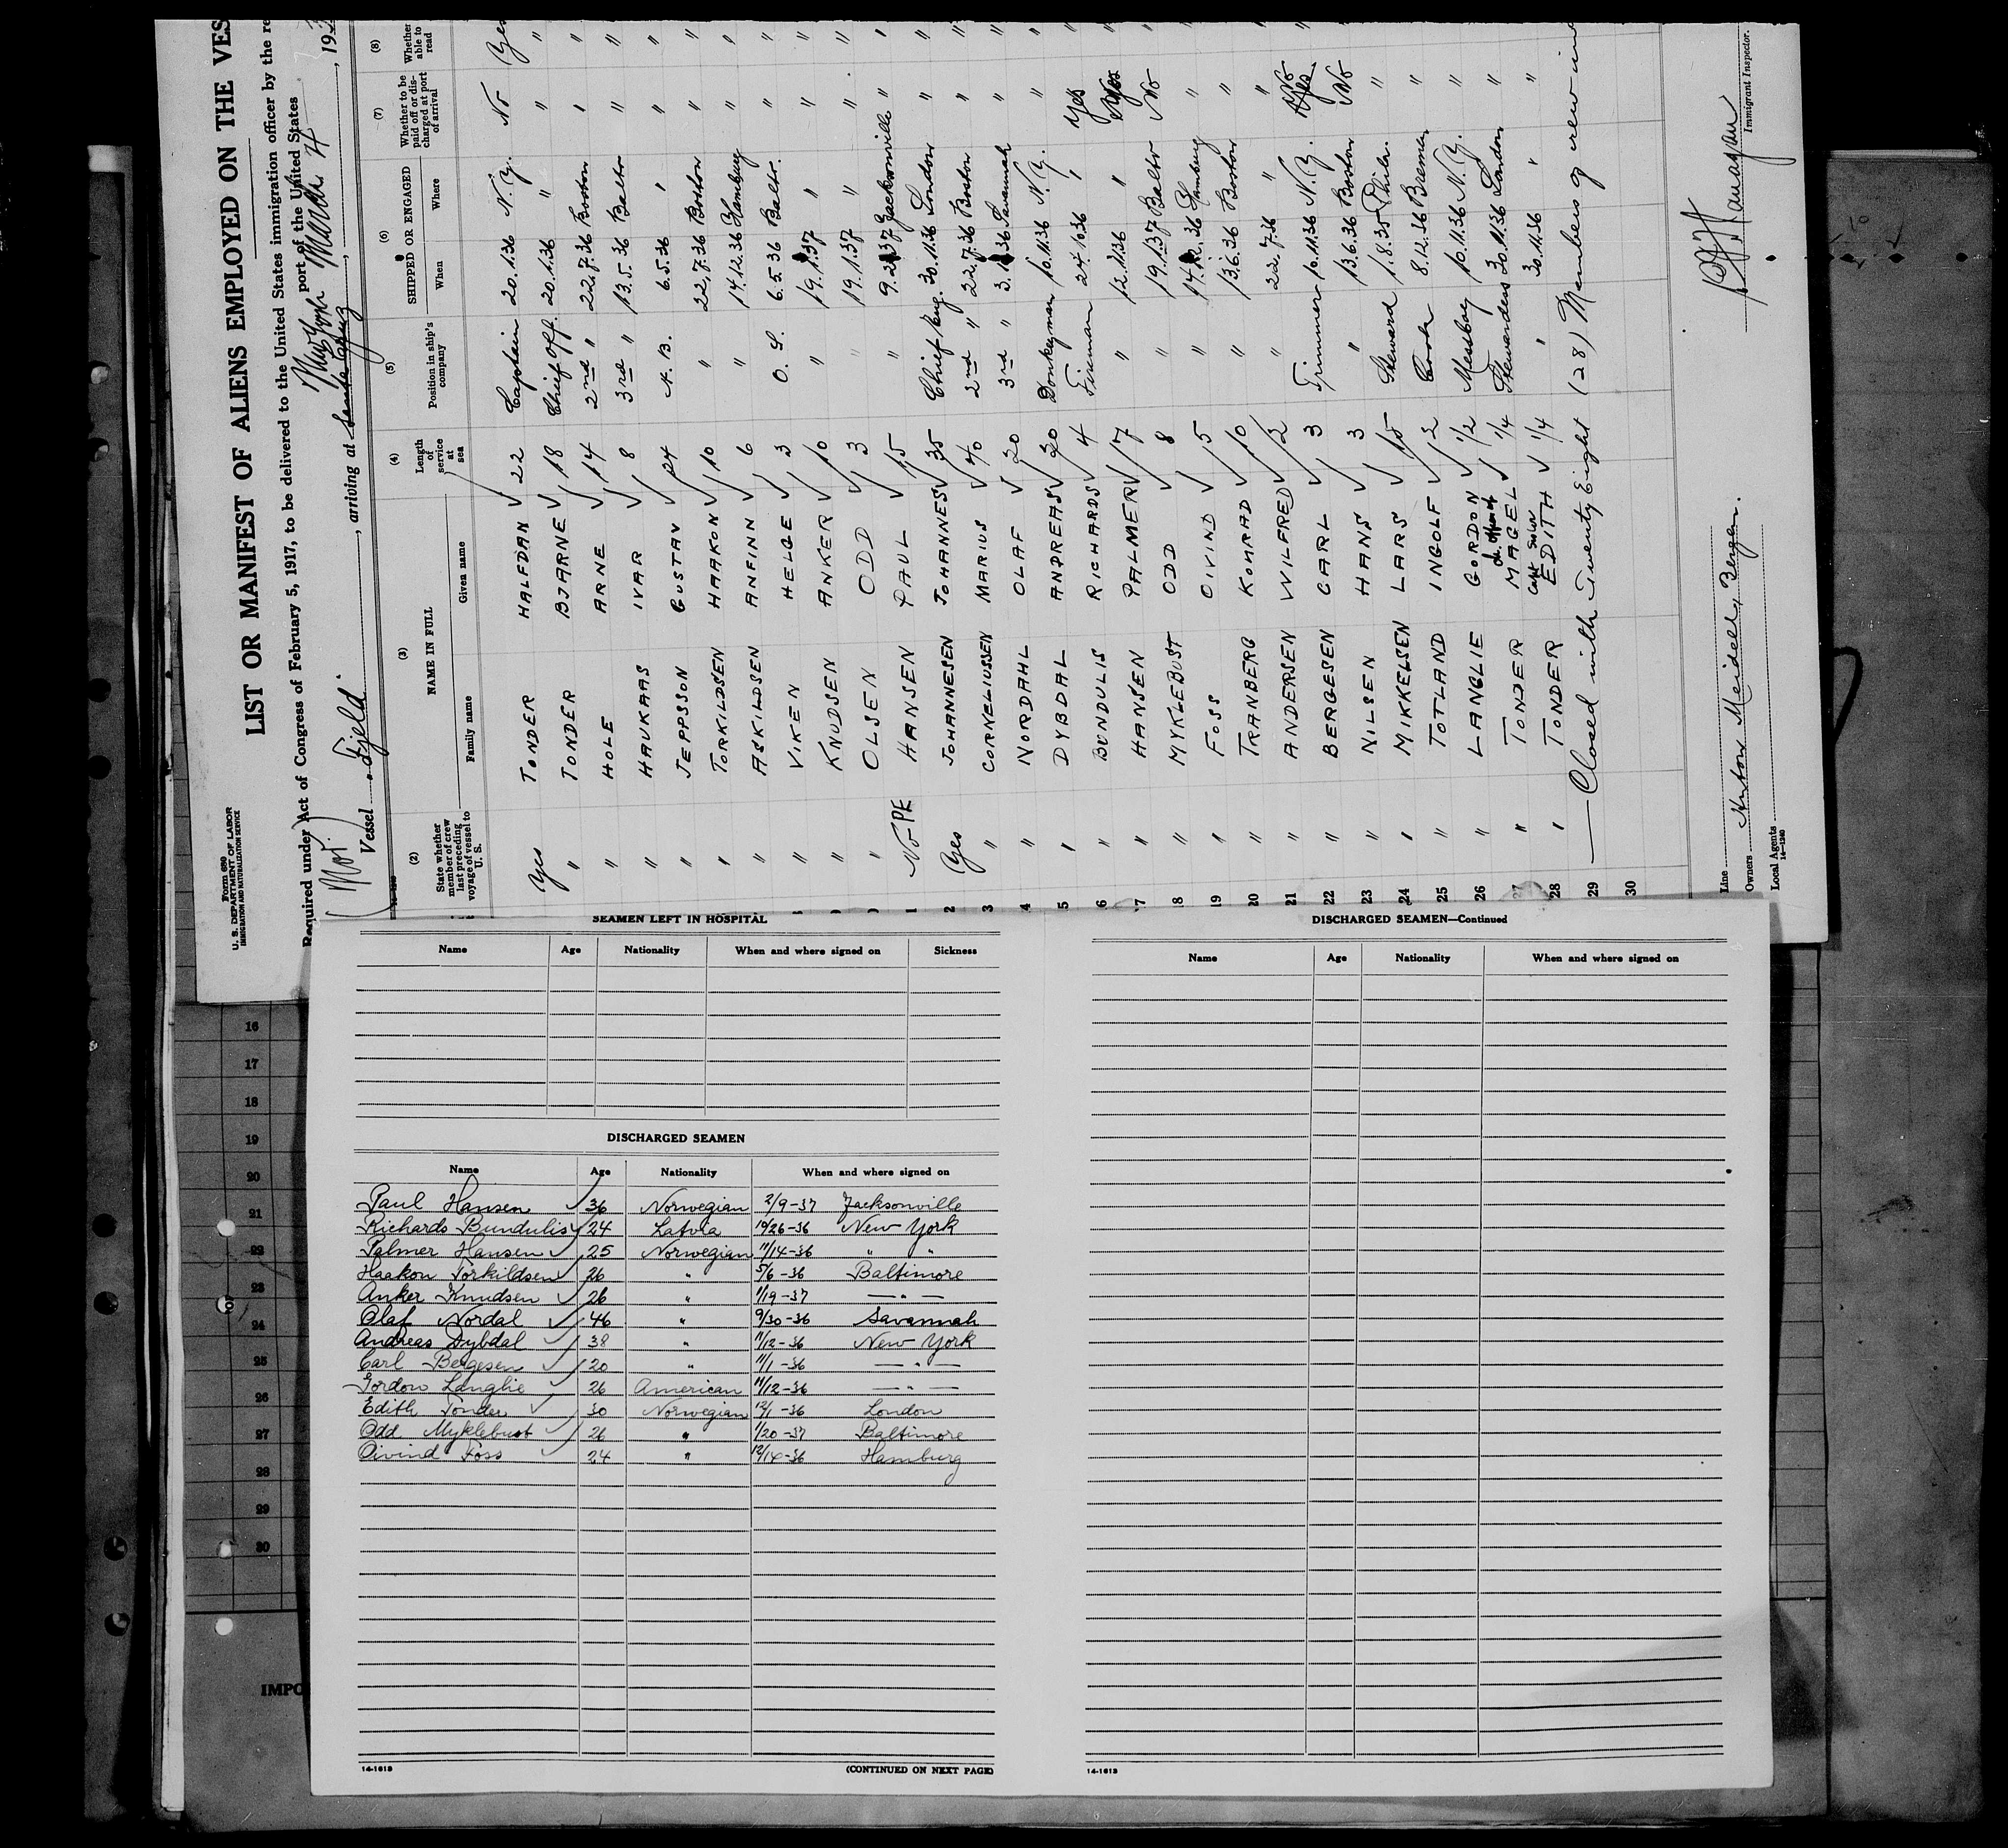 Form 680
U. S. DEPARTMENT OF LABOR
IMMIGRATION AND NATURALIZATION SERVICE
LIST OR MANIFEST OF ALIENS EMPLOYED ON THE VES
Required under Act of Congress of February 5, 1917, to be delivered to the United States immigration officer by the re
port of the United States
(Nor.)
Vessel Fjeld, arriving at New York March 4, 193
(2) State whether member of crew last preceding voyage of vessel to U. S.
(3) NAME IN FULL Family name Given name
(4) Length of service at sea
(5) Position in ship's company
(6) SHIPPED OR ENGAGED When Where
(7) Whether to be paid off or discharged at port of arrival
(8) Whether able to read
Yes TONDER HALFDAN √ 22 Captain 20.1.36 N.Y. No Yes
" TONDER BJARNE √ 18 Chief Off. 20.1.36 " " "
" HOLE ARNE √ 14 2nd " 22.7.36 Boston " "
" HAUKAAS IVAR √ 8 3rd " 13.5.36 Balto " "
" JEPPSSON GUSTAV √ 24 A.B. 6.5.36 " " "
" TORKILDSEN HAAKON √ 10 " 22.7.36 Boston " "
" ASKILDSEN ANFINN √ 6 " 14.12.36 Hamburg " "
" VIKEN HELGE √ 3 O.S. 6.5.36 Balto. " "
" KNUDSEN ANKER √ 10 " 19.1.37 " " "
" OLSEN ODD √ 3 " 19.1.37 " " "
No-PE HANSEN PAUL √ 15 " 9.2.37 Jacksonville " "
Yes JOHANNESEN JOHANNES √ 35 Chief Eng. 30.11.36 London " "
" CORNELIUSSEN MARIUS √ 40 2nd " 22.7.36 Boston " "
" NORDAHL OLAF √ 20 3rd " 3.1.36 Savannah " "
" DYBDAL ANDREAS √ 20 Donkeyman 10.11.36 N.Y. " "
" BUNDULIS RICHARDS √ 4 Fireman 24.10.36 " Yes "
" HANSEN PALMER √ 7 " 12.11.36 " Yes "
" MYKLEBUST ODD √ 8 " 19.1.37 Balto No "
" FOSS OIVIND √ 5 " 14.12.36 Hamburg " "
" TRANBERG KONRAD √ 10 " 13.6.36 Boston " "
" ANDERSEN WILFRED √ 2 " 22.7.36 " " "
" BERGESEN CARL √ 3 Trimmer 10.11.36 N.Y. Yes "
" NILSEN HANS √ 3 " 13.6.36 Boston No "
" MIKKELSEN LARS √ 15 Steward 1.8.35 Phila. " "
" TOTLAND INGOLF √ 2 Cook 8.12.36 Bremen " "
" LANGLIE GORDON √ 1/2 Messboy 10.11.36 N.Y. " "
" TONDER MAGEL √ 1/4 Stewardess 30.11.36 London " "
" TONDER EDITH √ 1/4 " 30.11.36 " "
Closed with Twenty Eight (28) Members of crew
11
12
13
14
15
16
17
18
19
20
21
22
23
24
25
26
27
28
29
30
Line
Owners Anton Meidell, Bergen.
Local Agents
14—1240
Immigrant Inspector.
SEAMEN LEFT IN HOSPITAL
Name Age Nationality When and where signed on Sickness
DISCHARGED SEAMEN
Name Age Nationality When and where signed on
Paul Hansen √ 36 Norwegian 2/9-37 Jacksonville
Richards Bundulis √ 24 Latvia 10/26-36 New York
Palmer Hansen √ 25 Norwegian 11/14-36 " "
Haakon Torkildsen √ 26 " 5/6-36 Baltimore
Anker Knudsen √ 26 " 1/19-37 — " —
Olaf Nordal √ 46 " 9/30-36 Savannah
Andreas Dybdal √ 38 " 11/12-36 New York
Carl Bergesen √ 20 " 11/1-36 — " —
Gordon Langlie √ 26 American 11/12-36 — " —
Edith Tonder √ 30 Norwegian 12/1-36 London
Odd Myklebust √ 26 " 1/20-37 Baltimore
Oivind Foss √ 24 " 12/14-36 Hamburg
14-1613
(CONTINUED ON NEXT PAGE)
DISCHARGED SEAMEN—Continued
Name Age Nationality When and where signed on
14-1613
16
17
18
19
20
21
22
23
24
25
26
27
28
29
30
IMPO